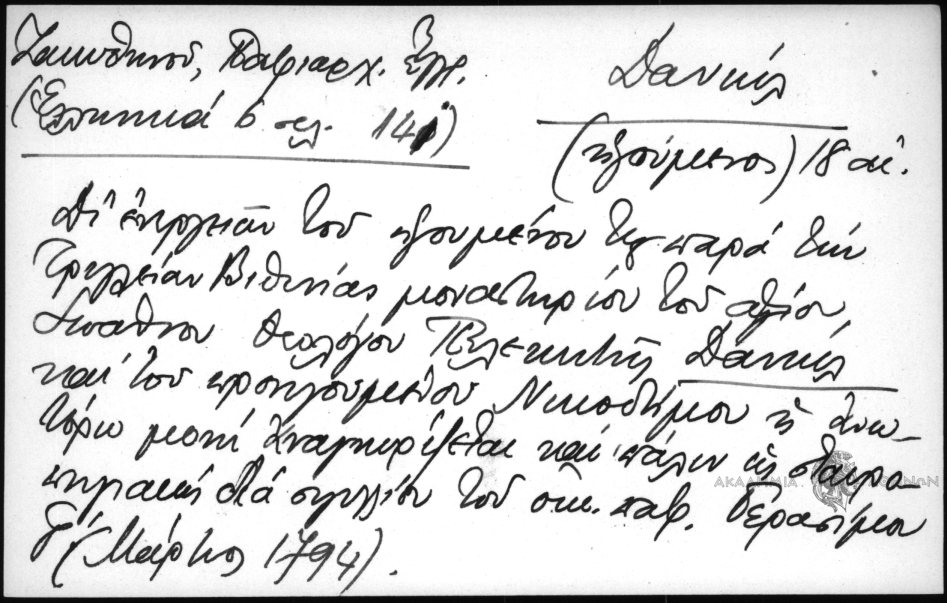 Ζακυθηνοῦ, Πατριαρχ. Ἔγγρ.
(Ἑλληνικά 6 σελ. 141)
Δανιήλ
(ἡγούμενος) 18 αἰ.
Δι' ἐνεργειῶν τοῦ ἡγουμένου τῆς παρά τήν
Τριγλείαν Βιθυνίας μοναστηρίου τοῦ ἁγίου
Ἰωάννου Θεολόγου Πελεκητῆς Δανιήλ
καί τοῦ προηγουμένου Νικοδήμου ἡ ἀνω-
τέρω μονή ἀναγνωρίζεται καί πάλιν ὡς σταυρο-
πηγιακή διά σιγιλλίου τοῦ οἰκ. πατρ. Γερασίμου
Γ΄ (Μάρτιος 1794).
ΑΚΑΔΗΜΙΑ ΑΘΗΝΩΝ